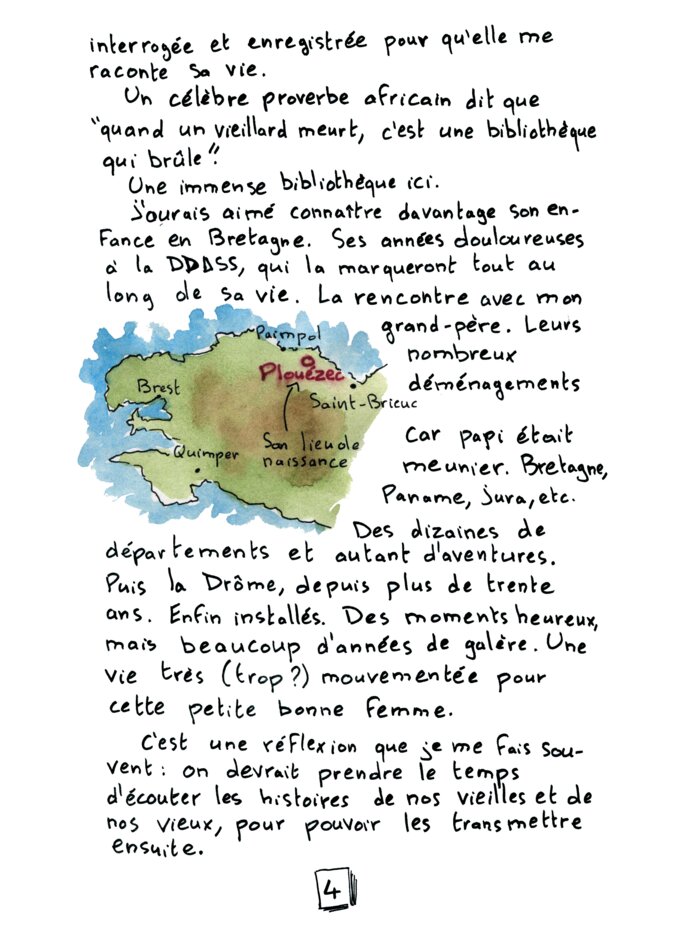 interrogée et enregistrée pour qu'elle me
raconte sa vie.
Un célèbre proverbe africain dit que
"quand un vieillard meurt, c'est une bibliothèque
qui brûle".
Une immense bibliothèque ici.
J'ourais aimé connaître davantage son en-
fance en Bretagne. Ses années douloureuses
à la DDASS, qui la marqueront tout au
long de sa vie. La rencontre avec mon
grand-père. Leurs
nombreux
déménagements
Car papi était
meunier. Bretagne,
Paname, Jura, etc.
Paimpol
Plouézec
Brest
Saint-Brieuc
Son lieu de
naissance
Quimper
Des dizaines de
départements et autant d'aventures.
Puis la Drôme, depuis plus de trente
ans. Enfin installés. Des moments heureux,
mais beaucoup d'années de galère. Une
vie très (trop?) mouvementée pour
cette petite bonne femme.
C'est une réflexion que je me fais sou-
vent : on devrait prendre le temps
d'écouter les histoires de nos vieilles et de
nos vieux, pour pouvoir les transmettre
ensuite.
4